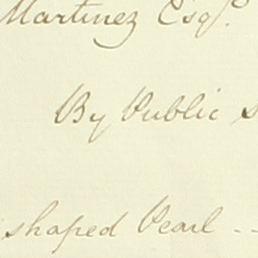 Martinez Esqr.
By Public s
shaped Pearl - -